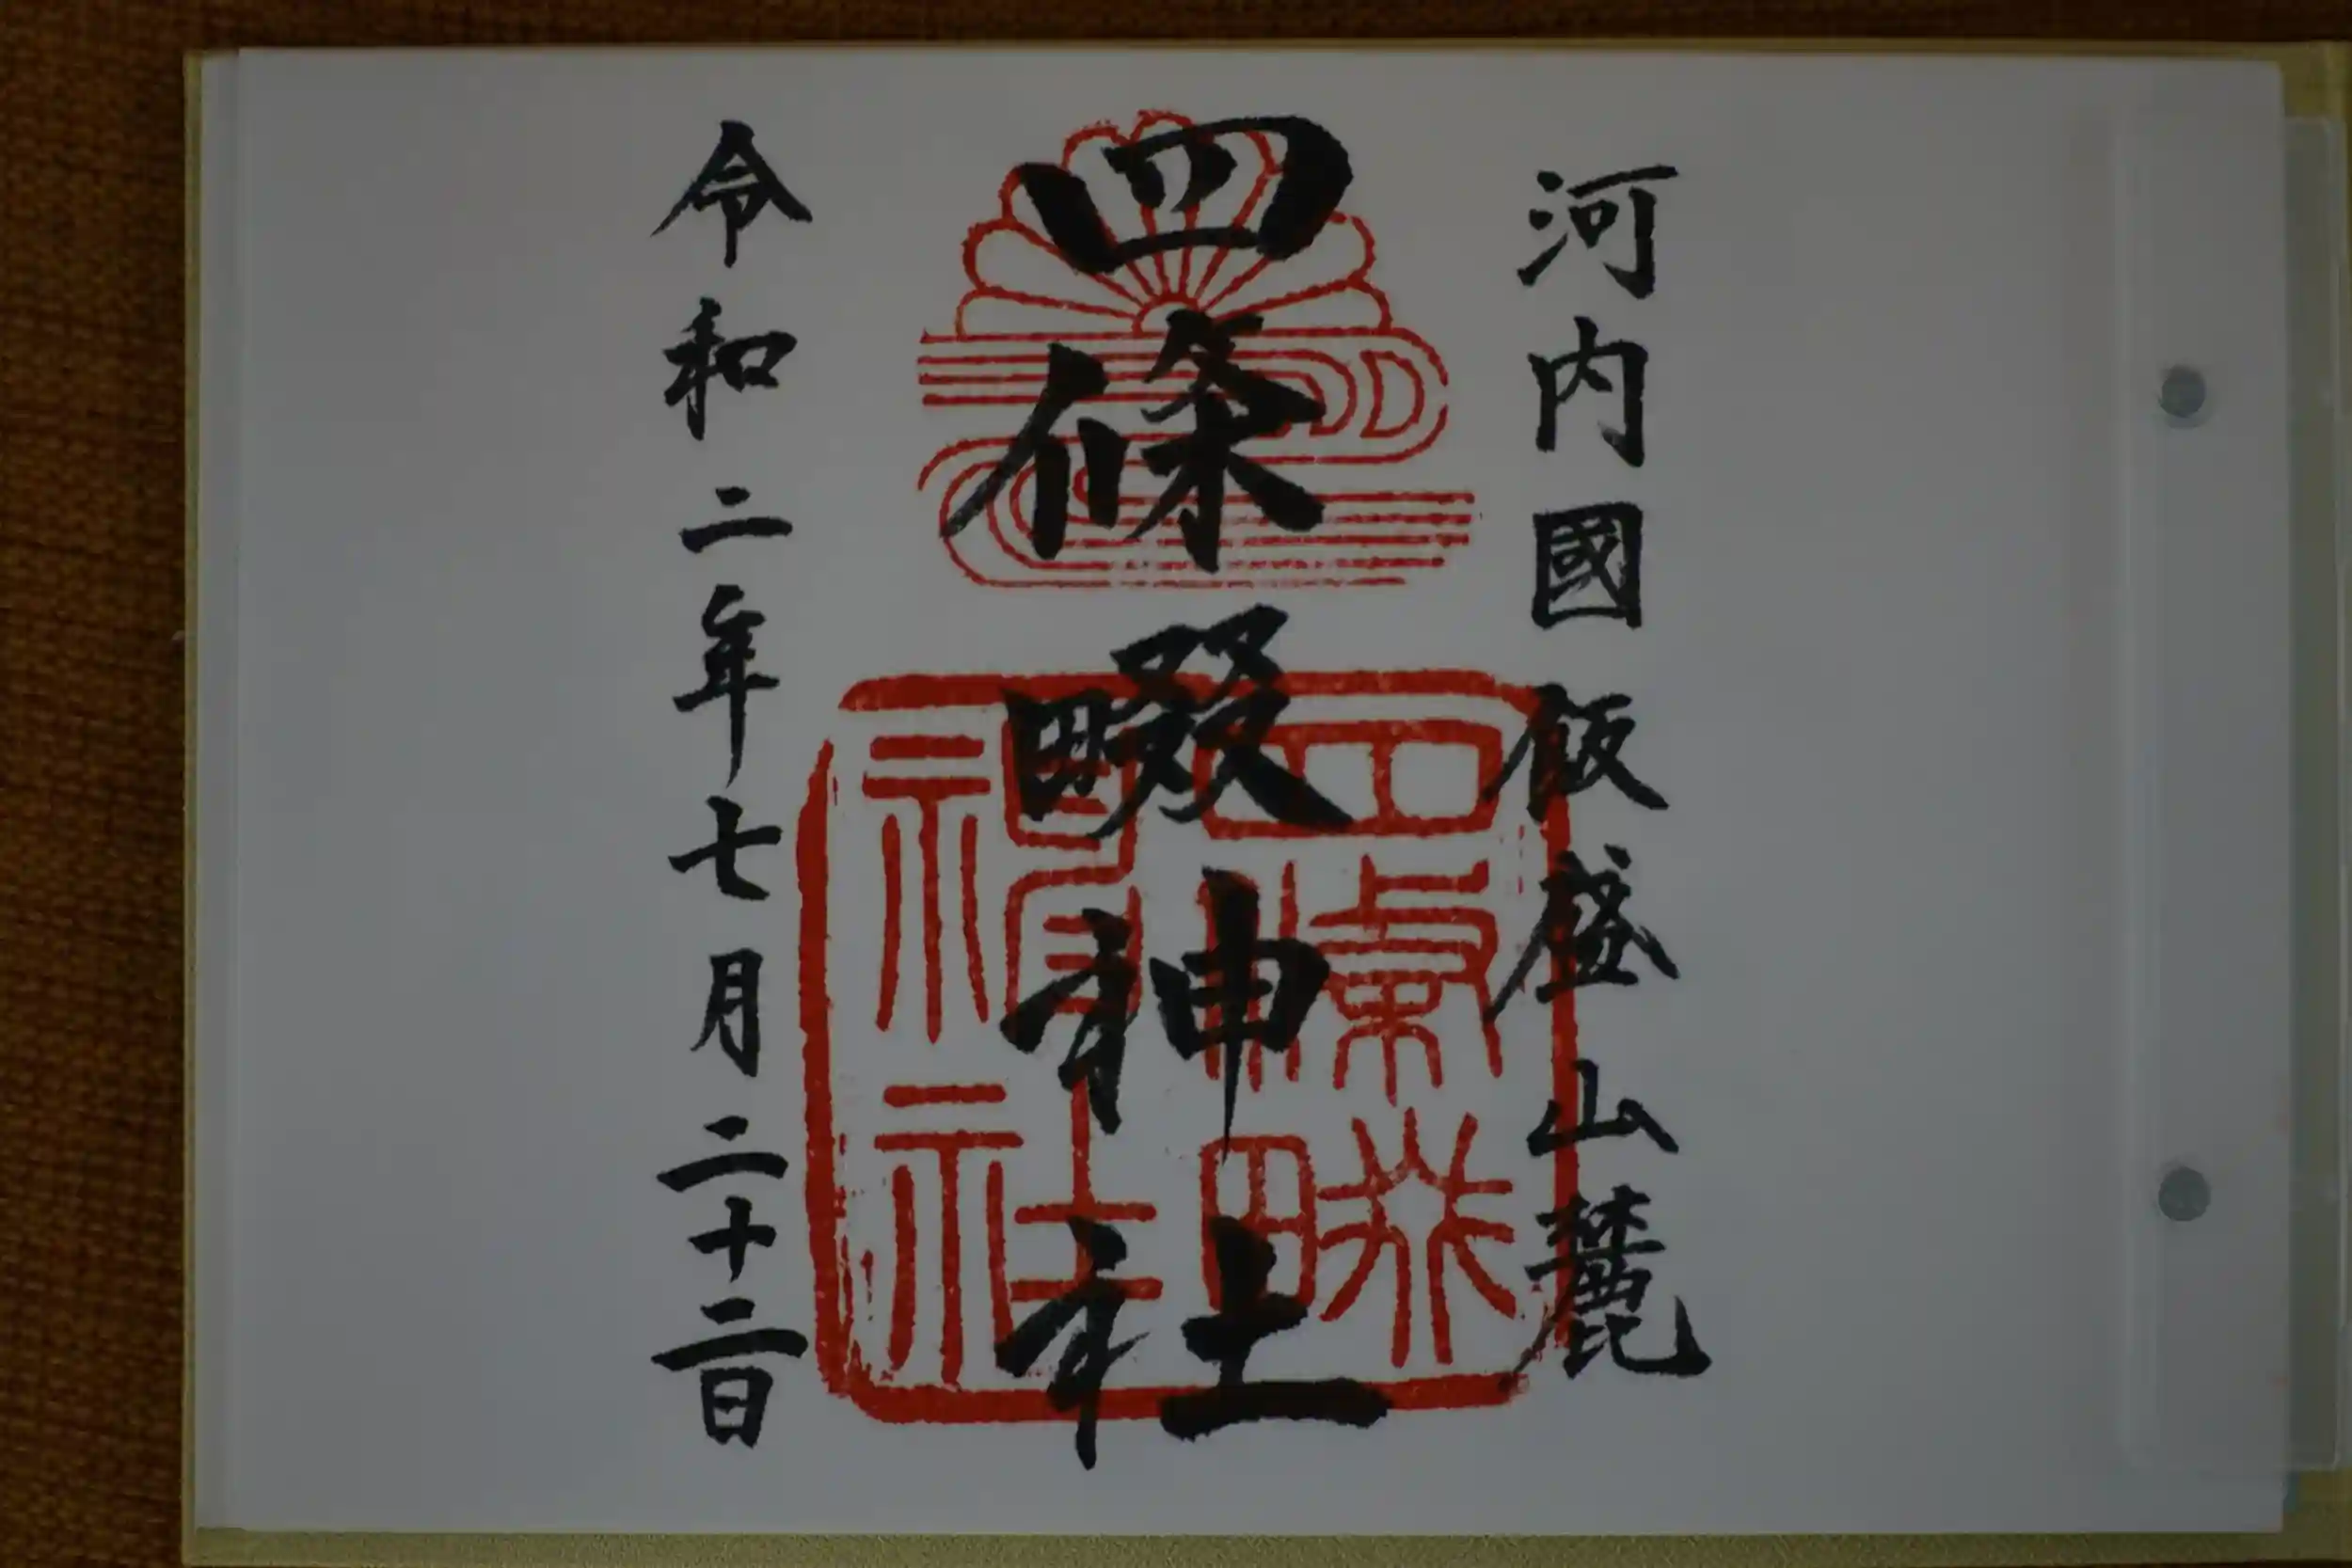 河内國飯盛山麓
四條畷神社
令和二年七月二十二日
四條畷
神社